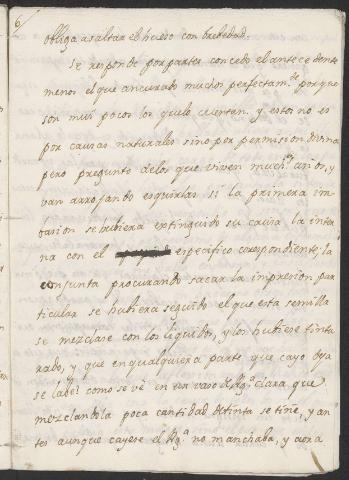 6
obliga a saltar el hueso con brebedad.
Se responde por partes concedo el antecedente
menos el que an curado muchos perfectam.te porque
son mui pocos los que lo cuentan. y estos no es
por causas naturales sino por permision divina
pero pregunto de los que viven much.os años, y
van arrojando esquirlas si la primera im
basion se hubiera extinguido su causa la inter
na con el especifico corespondiente, la
conjunta procurando sacar la impresion par
ticular se hubiera seguido el que esta semilla
se mezclase con los liquidos, y los hubiese tintu
rado, y que en qualquiera parte que cayo
se como se vè en un vaso de Ag.a clara que
mezclandola poca cantidad de tinta se tiñe, y an
tes aunque cayese el Ag.a no manchaba, y aora